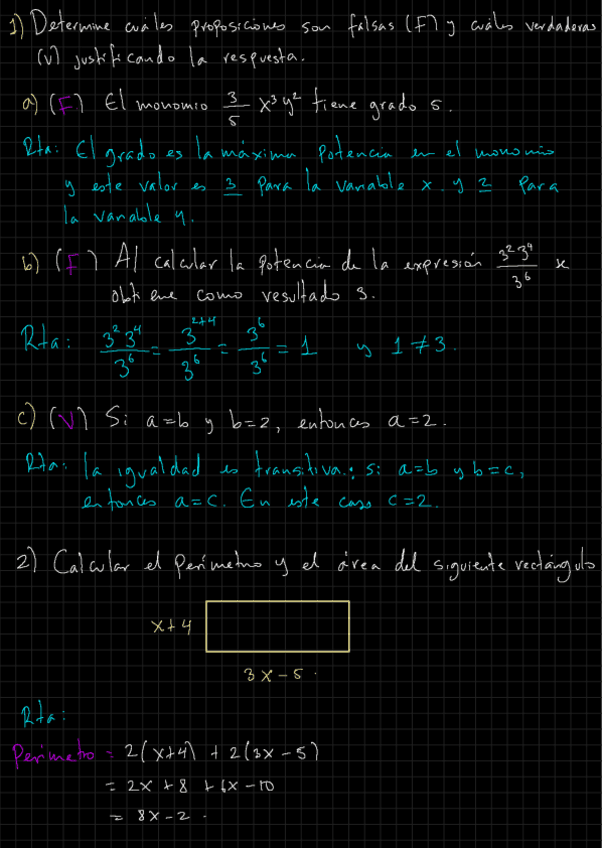 1) Determine cuáles proposiciones son falsas (F) y cuáles verdaderas
(V) justificando la respuesta.
a) (F) El monomio $\frac{3}{5} x^3 y^2$ tiene grado 5.
Rta: El grado es la máxima potencia en el monomio
y este valor es 3 para la variable x y 2 para
la variable y.
b) (F) Al calcular la potencia de la expresión $\frac{3^2 3^4}{3^6}$ se
obtiene como resultado 3.
Rta: $\frac{3^2 3^4}{3^6} = \frac{3^{2+4}}{3^6} = \frac{3^6}{3^6} = 1$ y $1 \neq 3$.
c) (V) Si a=b y b=2, entonces a=2.
Rta: la igualdad es transitiva; si a=b y b=c,
entonces a=c. En este caso c=2.
2) Calcular el perímetro y el área del siguiente rectángulo
x+4
3x-5.
Rta:
Perímetro = 2(x+4) + 2(3x-5)
= 2x + 8 + 6x - 10
= 8x - 2.